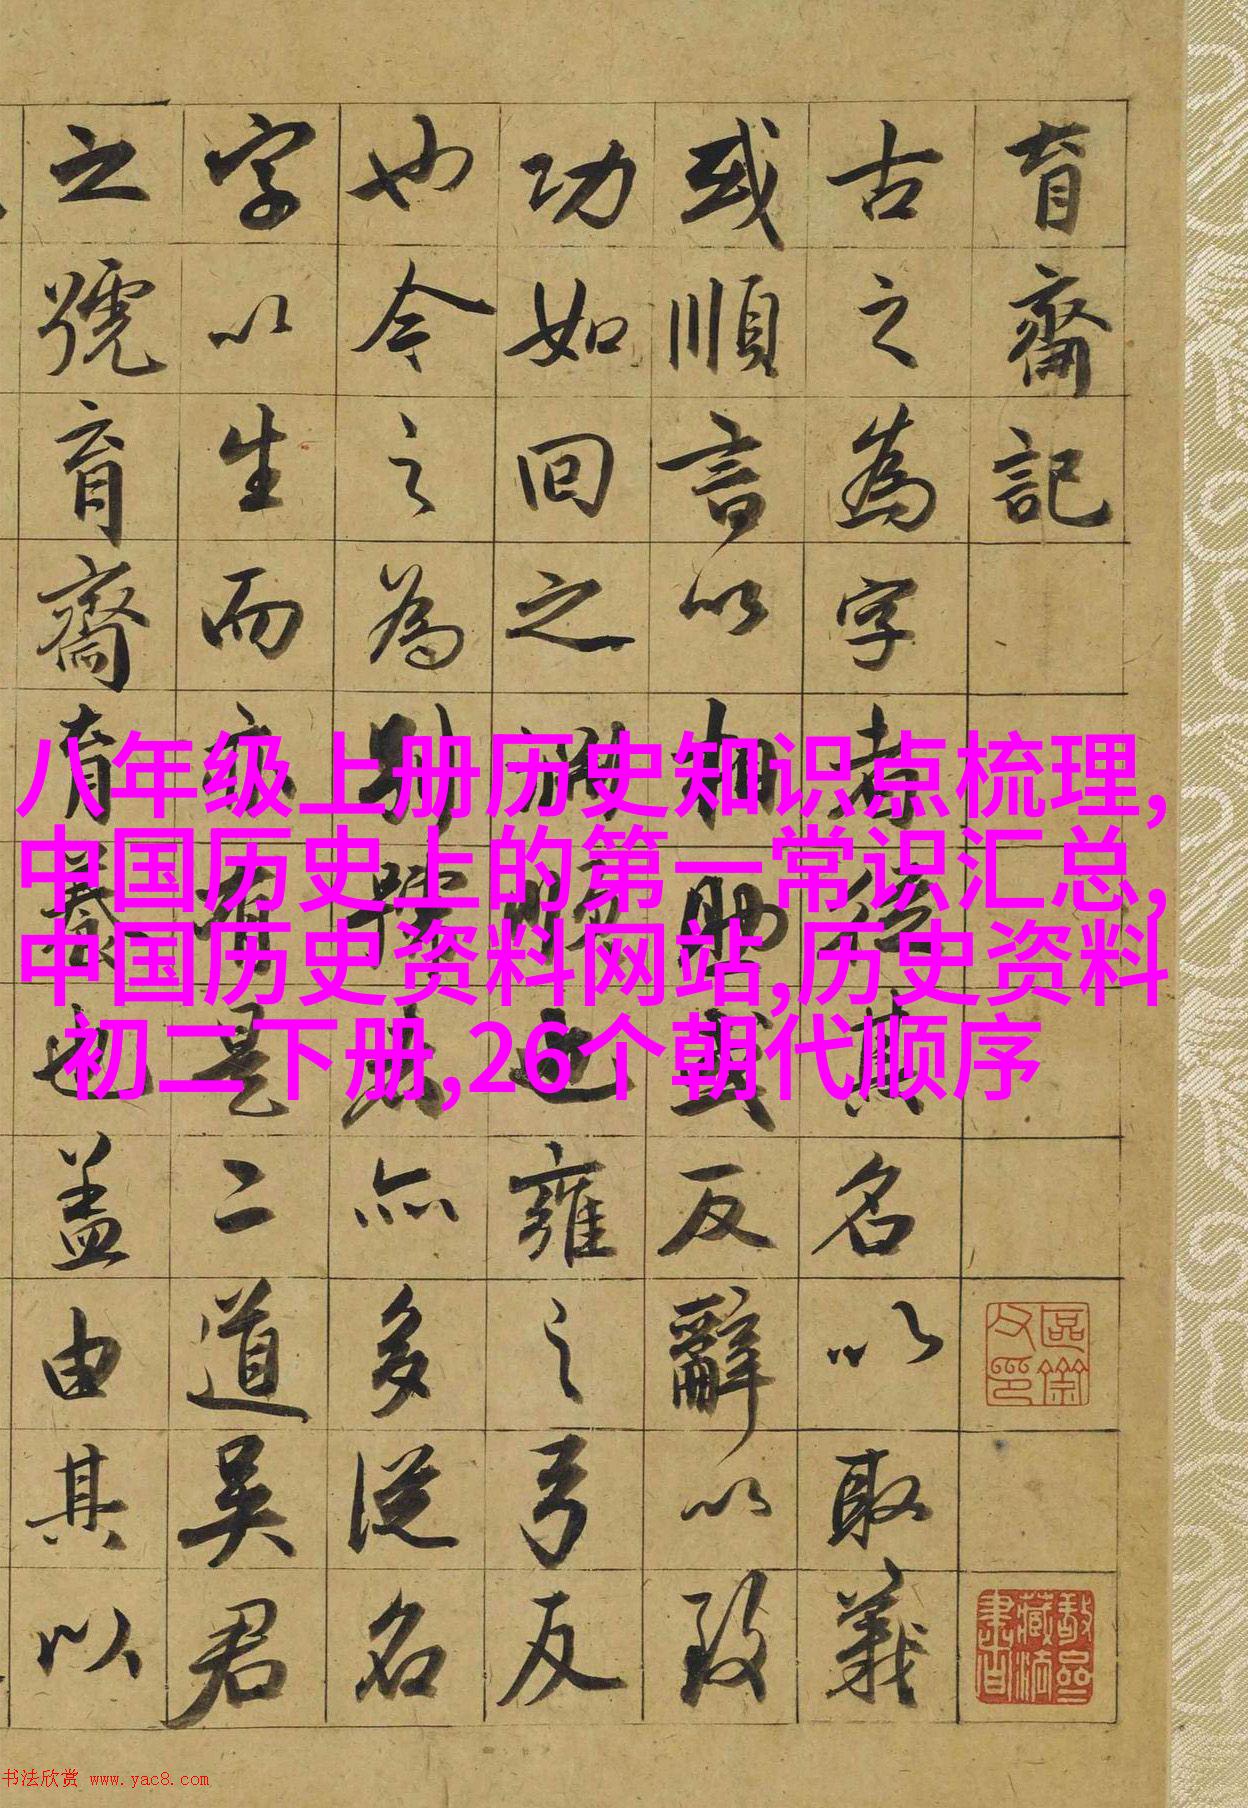 育齋記
古之為字者從其名以取義
或順言以相助或反辭以致
功如回之也雍之弓反
也今之為別號者亦多從名
字以生而有是二道吳君
之號育齋育養也蓋由其以
八年级上册历史知识点梳理,
中国历史上的第一常识汇总,
中国历史资料网站,历史资料
初二下册,26个朝代顺序
书法欣赏 www.yac8.com